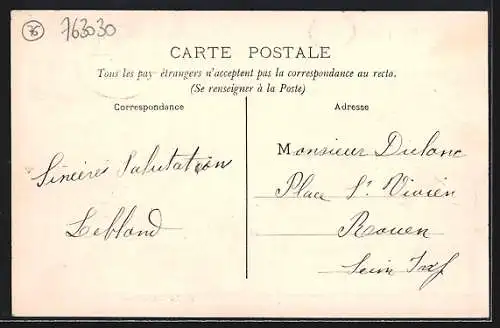 76
763030
CARTE POSTALE
Tous les pay étrangers n'acceptent pas la correspondance au recto.
(Se renseigner à la Poste)
Correspondance
Adresse
Sincères Salutation
Lebland
Monsieur Dulonc
Place St Vivien
Rouen
Seine Inf